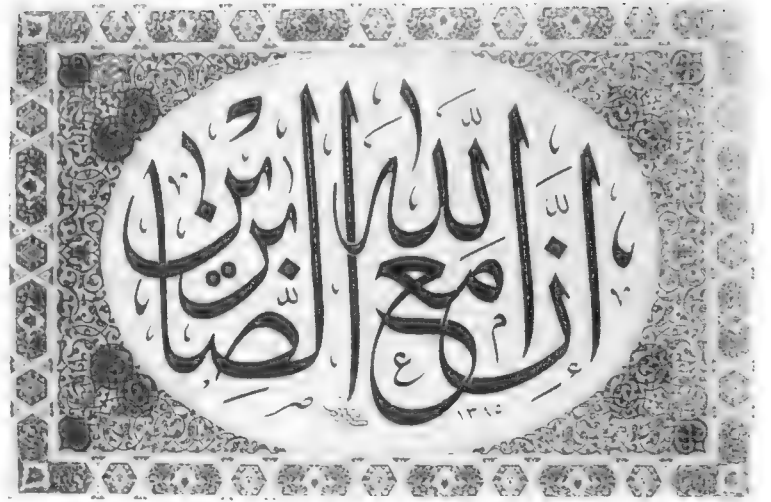 إِنَّ اللّٰهَ مَعَ الصَّابِرِينَ